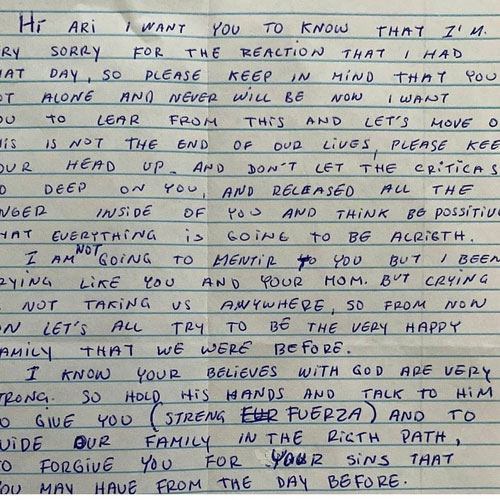 Hi ARI I WANT YOU TO KNOW THAT I'M.
RY SORRY FOR THE REACTION THAT I HAD
AT DAY, SO PLEASE KEEP IN MIND THAT YOU
OT ALONE AND NEVER WILL BE NOW I WANT
OU TO LEAR FROM THIS AND LET'S MOVE O
HIS IS NOT THE END OF OUR LIVES, PLEASE KEE
OUR HEAD UP. AND DON'T LET THE CRITICAS
O DEEP ON YOU, AND RELEASED ALL THE
NGER INSIDE OF YOU AND THINK BE POSSITIV
HAT EVERYTHING is GOING TO BE ALRIGTH.
I AM NOT GOING TO MENTIR to YOU BUT I BEEN
RYING LIKE YOU AND YOUR MOM. BUT CRYING
NOT TAKING US ANYWHERE, SO FROM NOW
ON LET'S ALL TRY TO BE THE VERY HAPPY
AMILY THAT WE WERE BEFORE.
I KNOW YOUR BELIEVES WITH GOD ARE VERY
TRONG. SO HOLD HIS HANDS AND TALK TO HIM
O GIVE YOU (STRENG FUERZA) AND TO
UIDE OUR FAMILY IN THE RIGTH PATH,
O FORGIVE YOU FOR YOUR SINS THAT
OU MAY HAVE FROM THE DAY BEFORE.